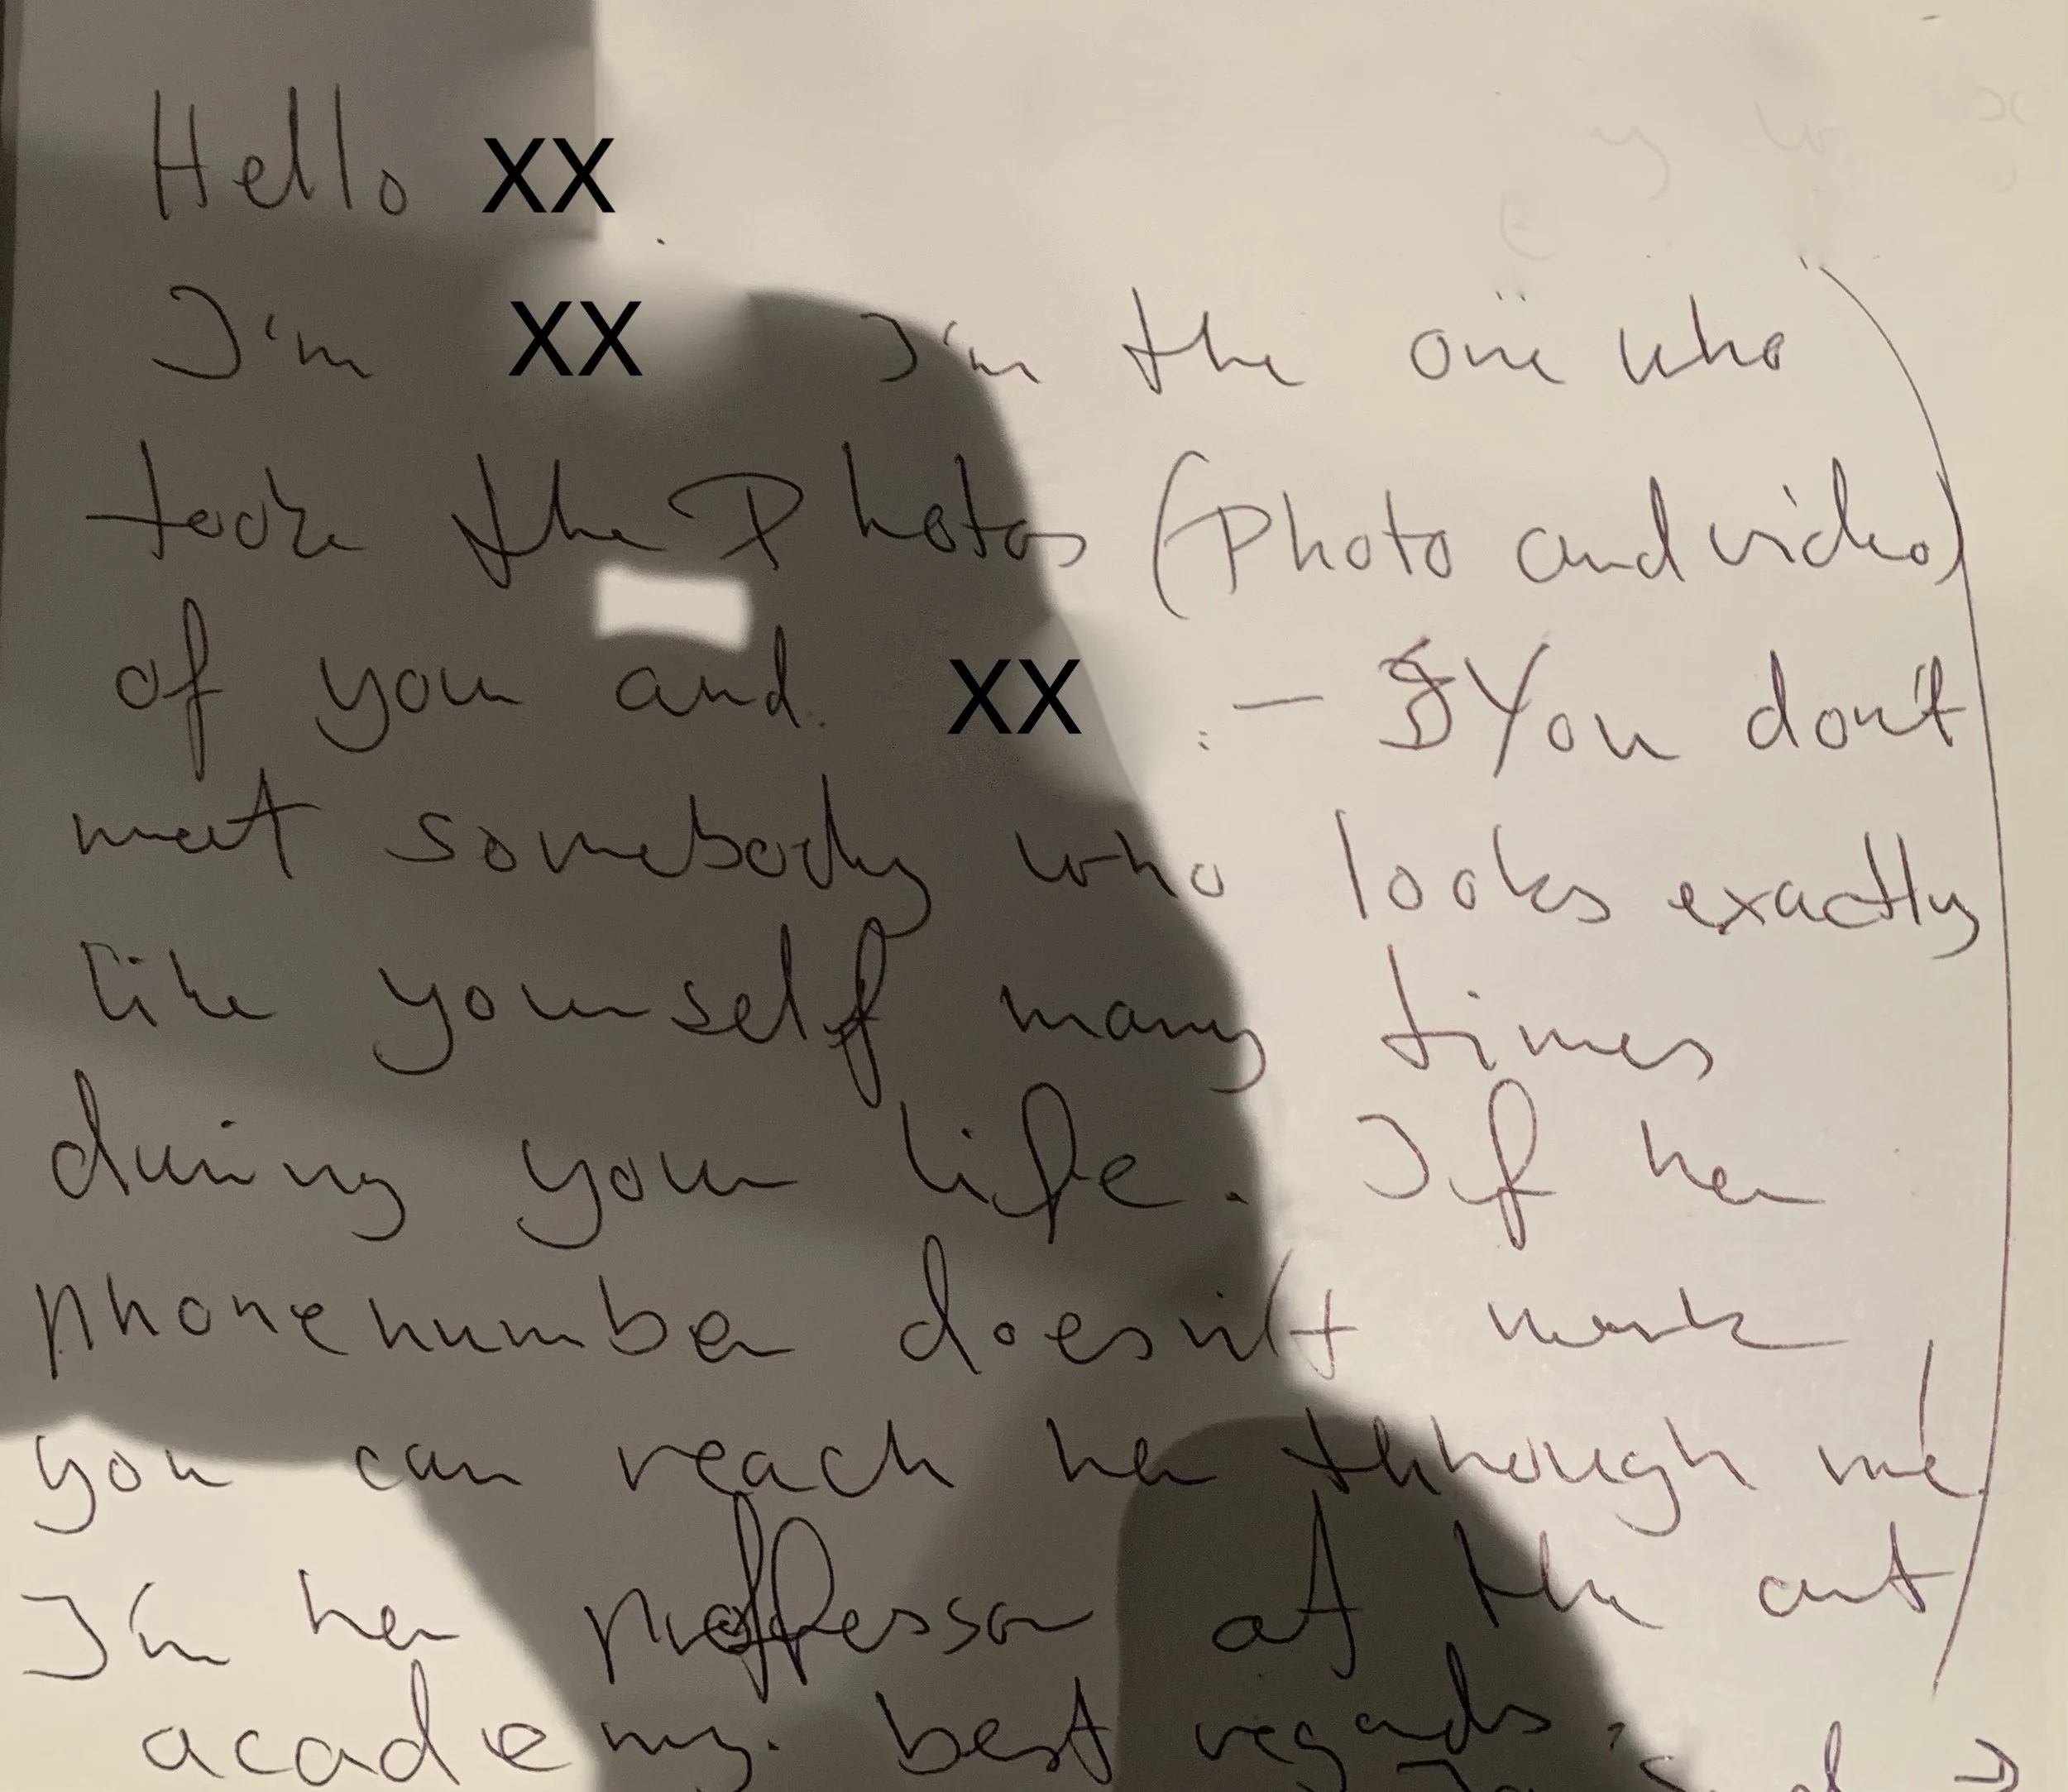 Hello XX
I'm XX I'm the one who
took the Photos (Photo and video)
of you and XX - You don't
meet somebody who looks exactly
like yourself many times
during your life. If her
phonenumber doesn't work,
you can reach her through me!
I'm her proffessor at the art
academy. best regards,